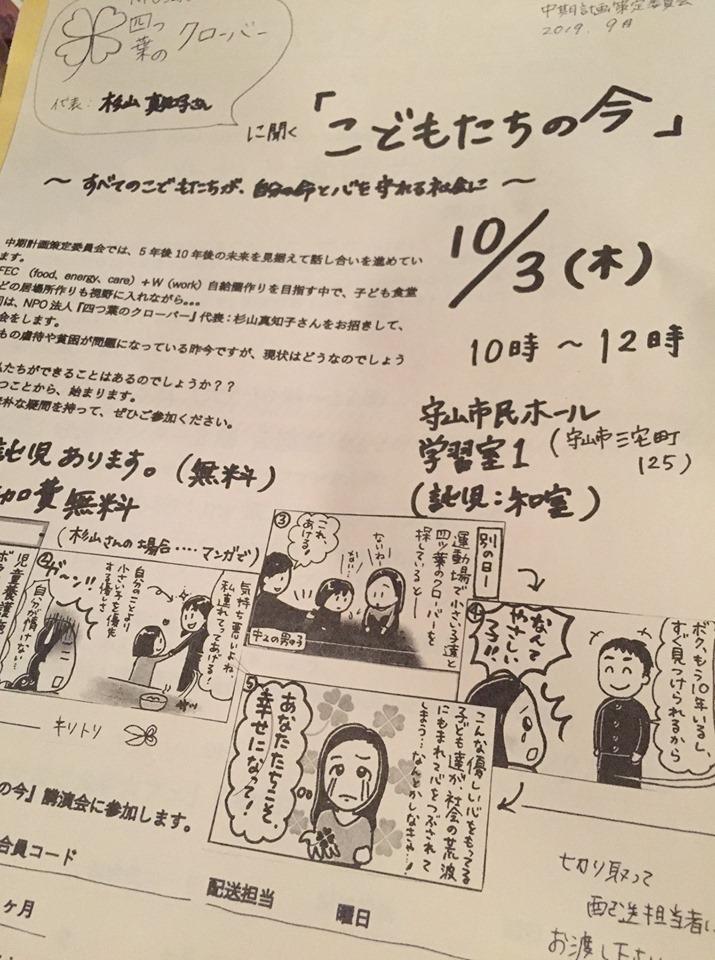 四つ葉の
クローバー
代表：杉山 真知子さん
中期計画策定委員会
2019. 9月
に聞く「こどもたちの今」
～ すべてのこどもたちが、自分の命と心を守れる社会に ～
中期計画策定委員会では、5年後10年後の未来を見据えて話し合いを進めてい
ます。
FEC （food、energy、care）＋W（work）自給圏作りを目指す中で、子ども食堂
どの居場所作りも視野に入れながら。。。
は、NPO法人『四つ葉のクローバー』代表：杉山真知子さんをお招きして、
会をします。
もの虐待や貧困が問題になっている昨今ですが、現状はどうなのでしょう
たちができることはあるのでしょうか？？
つことから、始まります。
朴な疑問を持って、ぜひご参加ください。
10/3(木)
10時 ～ 12時
守山市民ホール
学習室1
（守山市三宅町
125）
（託児：和室）
託児あります。（無料）
加費無料
（杉山さんの場合‥‥マンガで）
児童養護施
自分が情けない…
②
ガーン!!
自分のことより
小さい子を優先
する優しさ
気持ち悪いよね、
私連れてってあげる！
③
これ、
あげる！
中2の男子
ないわー
ない！
別の日ー
運動場で小さい子達と
四ツ葉のクローバーを
探していると―
④
なんて
やさしい
子!!
ボク、もう10年いるし、
すぐ見つけられるから
⑤
あなたたちこそ、
幸せになって！
こんな優しい心をもってる
子ども達が、社会の荒波
にもまれて心をつぶされて
しまう…なんとかしなきゃ…！
キリトリ
の今』講演会に参加します。
合員コード
ヶ月
配送担当
曜日
切り取って
配送担当者に
お渡し下さい